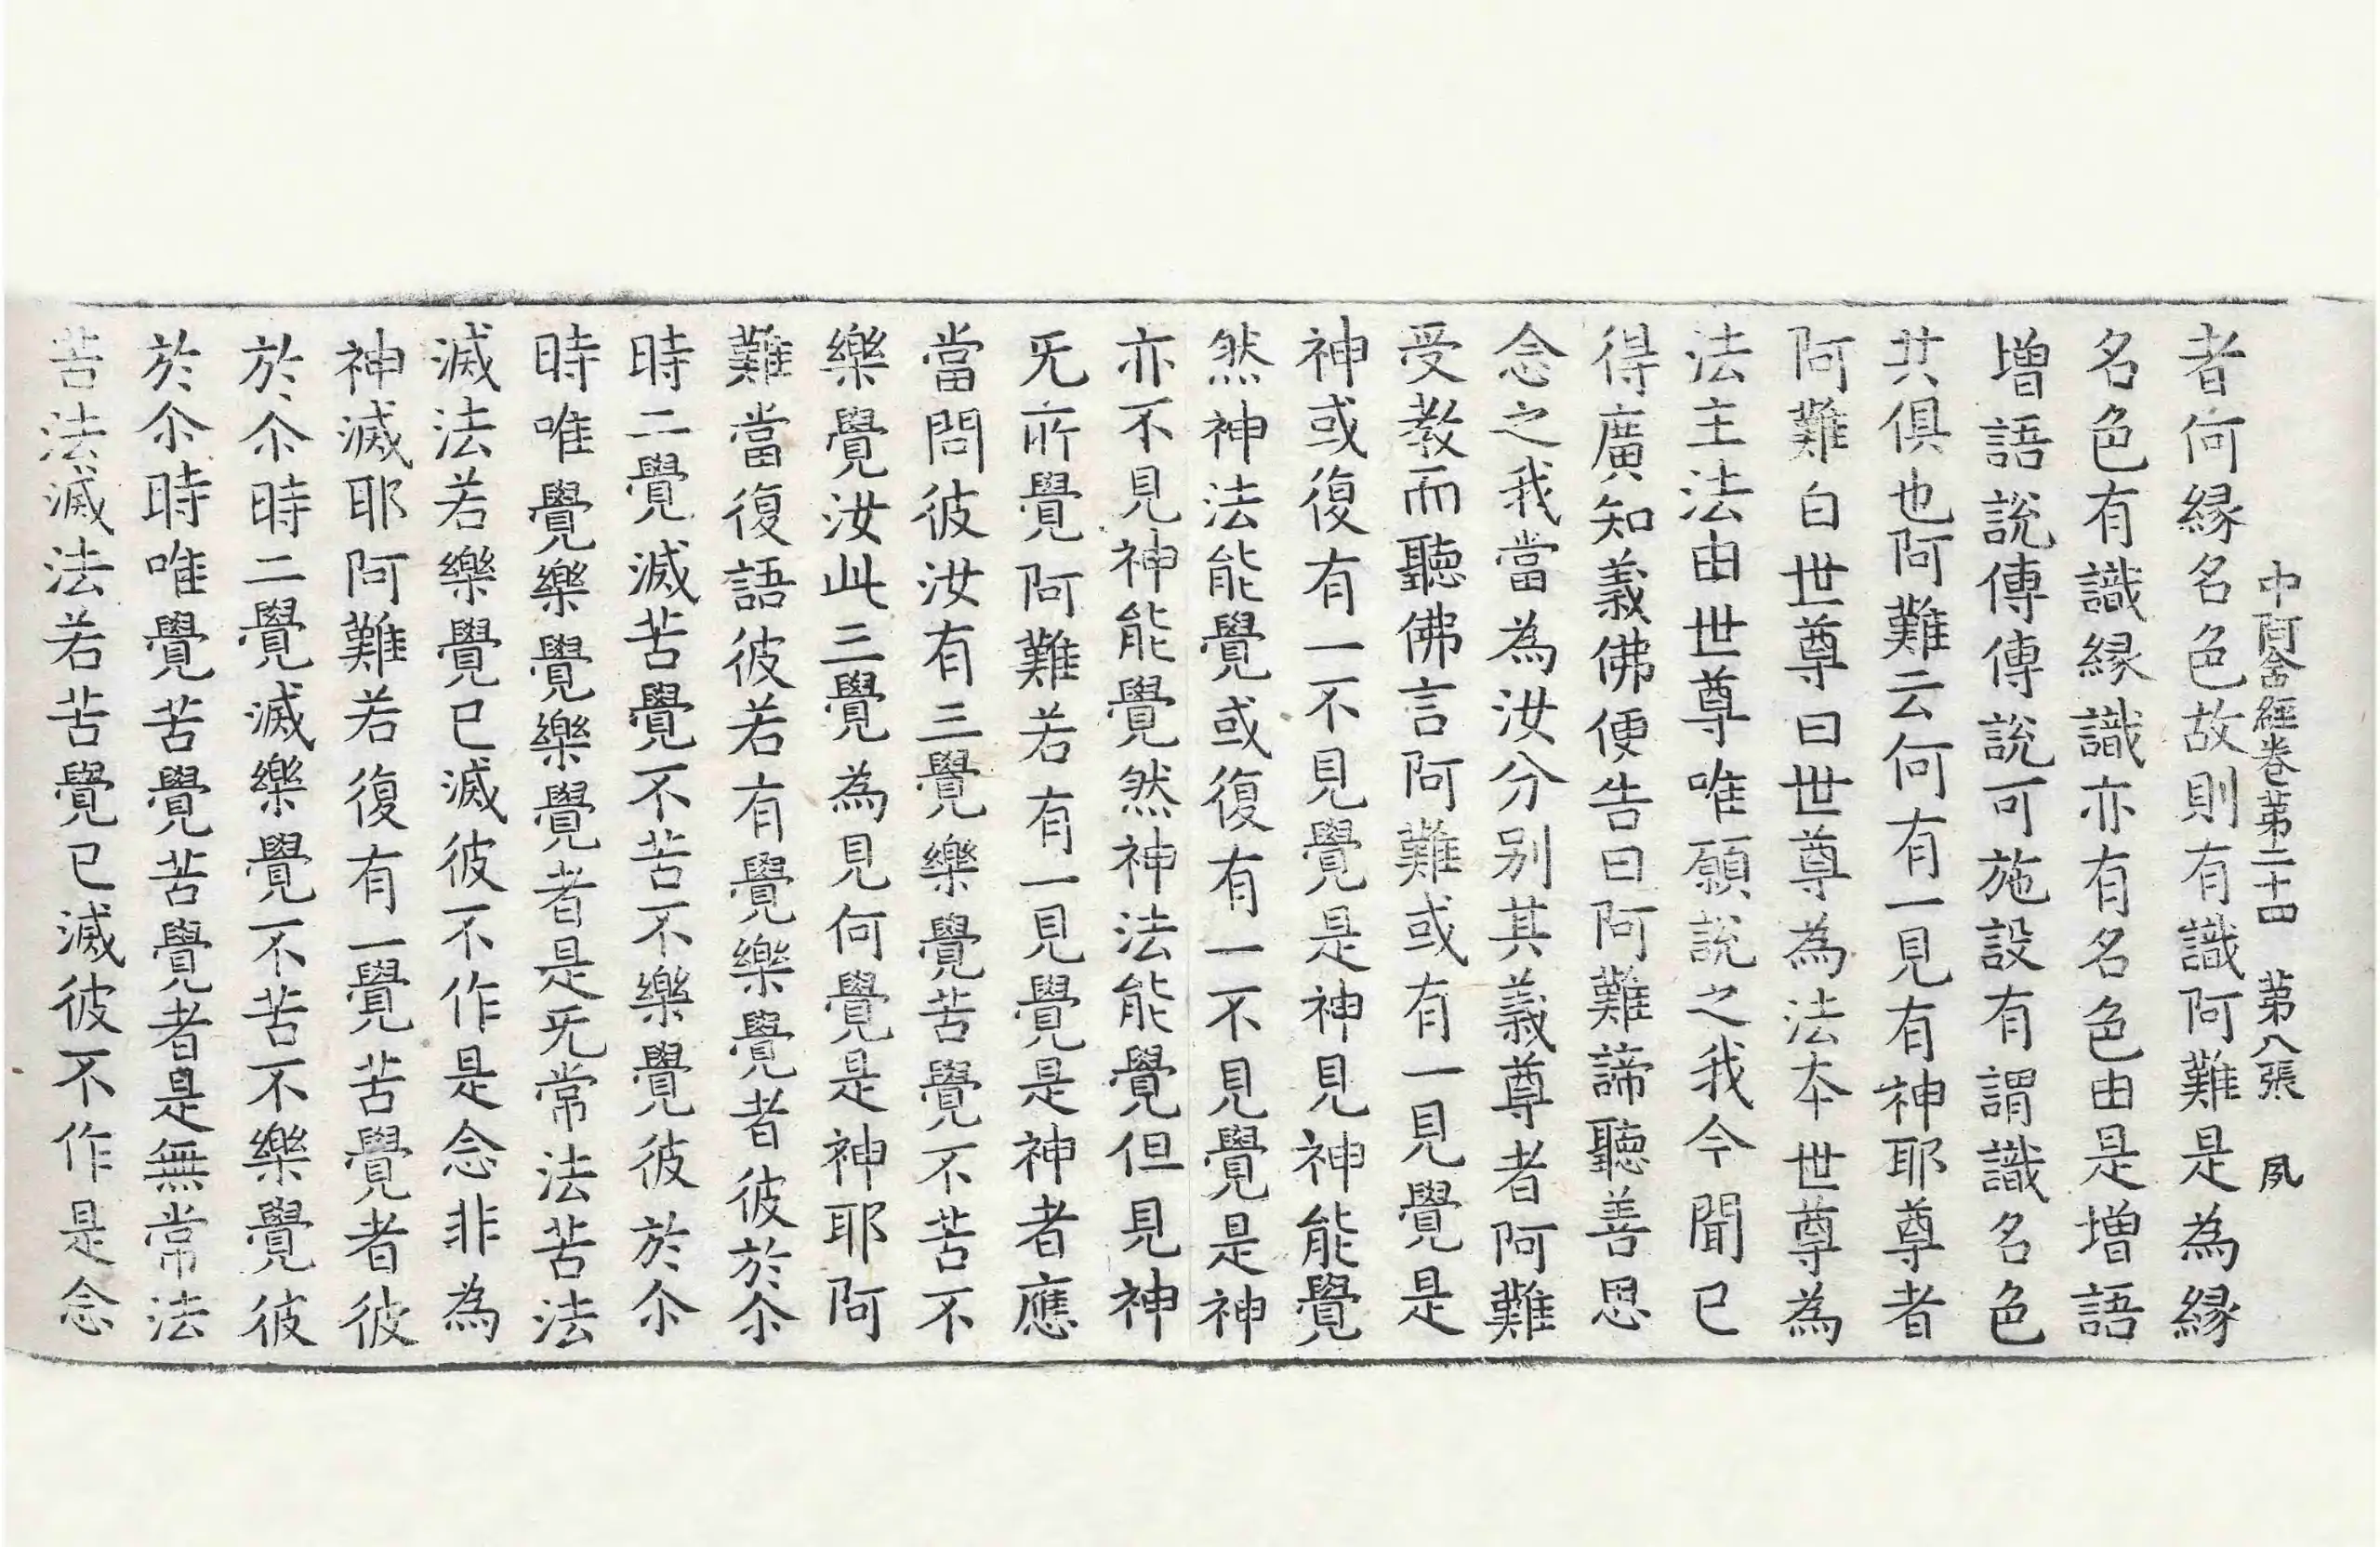 中阿含經卷第二十四　第八張　夙
者何緣名色故則有識阿難是為緣
名色有識緣識亦有名色由是增語
增語說傳傳說可施設有謂識名色
共俱也阿難云何有一見有神耶尊者
阿難白世尊曰世尊為法本世尊為
法主法由世尊唯願說之我今聞已
得廣知義佛便告曰阿難諦聽善思
念之我當為汝分別其義尊者阿難
受教而聽佛言阿難或有一見覺是
神或復有一不見覺是神見神能覺
然神法能覺或復有一不見覺是神
亦不見神能覺然神法能覺但見神
旡所覺阿難若有一見覺是神者應
當問彼汝有三覺樂覺苦覺不苦不
樂覺汝此三覺為見何覺是神耶阿
難當復語彼若有覺樂覺者彼於尒
時二覺滅苦覺不苦不樂覺彼於尒
時唯覺樂覺樂覺者是旡常法苦法
滅法若樂覺已滅彼不作是念非為
神滅耶阿難若復有一覺苦覺者彼
於尒時二覺滅樂覺不苦不樂覺彼
於尒時唯覺苦覺苦覺者是無常法
苦法滅法若苦覺已滅彼不作是念